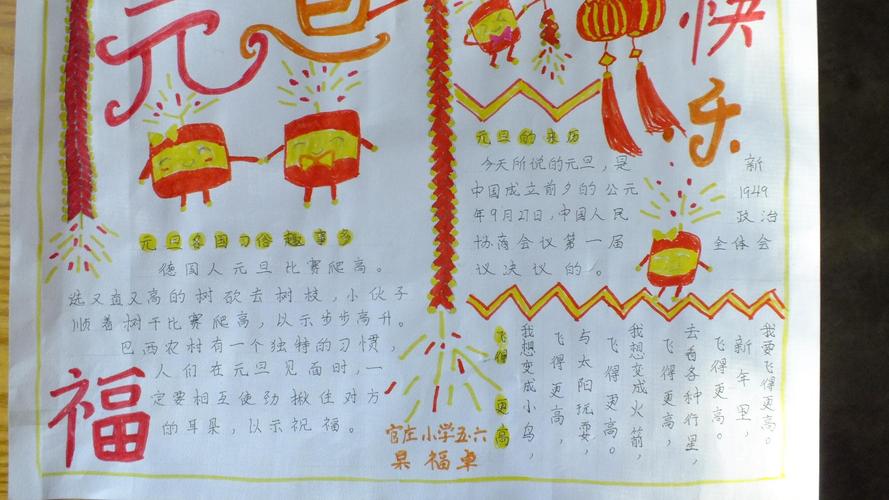 元旦
快乐
元旦各国习俗趣事多
德国人元旦比赛爬高。
选又直又高的树砍去树枝，小伙子
顺着树干比赛爬高，以示步步高升。
巴西农村有一个独特的习惯，
人们在元旦见面时，一
定要相互使劲揪住对方
的耳朵，以示祝福。
福
元旦的来历
今天所说的元旦，是新
中国成立前夕的公元1949
年9月27日，中国人民政治
协商会议第一届全体会
议决议的。
飞得更高
我要飞得更高。
新年里，
飞得更高。
去看各种行星，
飞得更高，
我想变成火箭，
飞得更高。
与太阳玩耍，
飞得更高，
我想变成小鸟，
官庄小学五.六
杲福卓